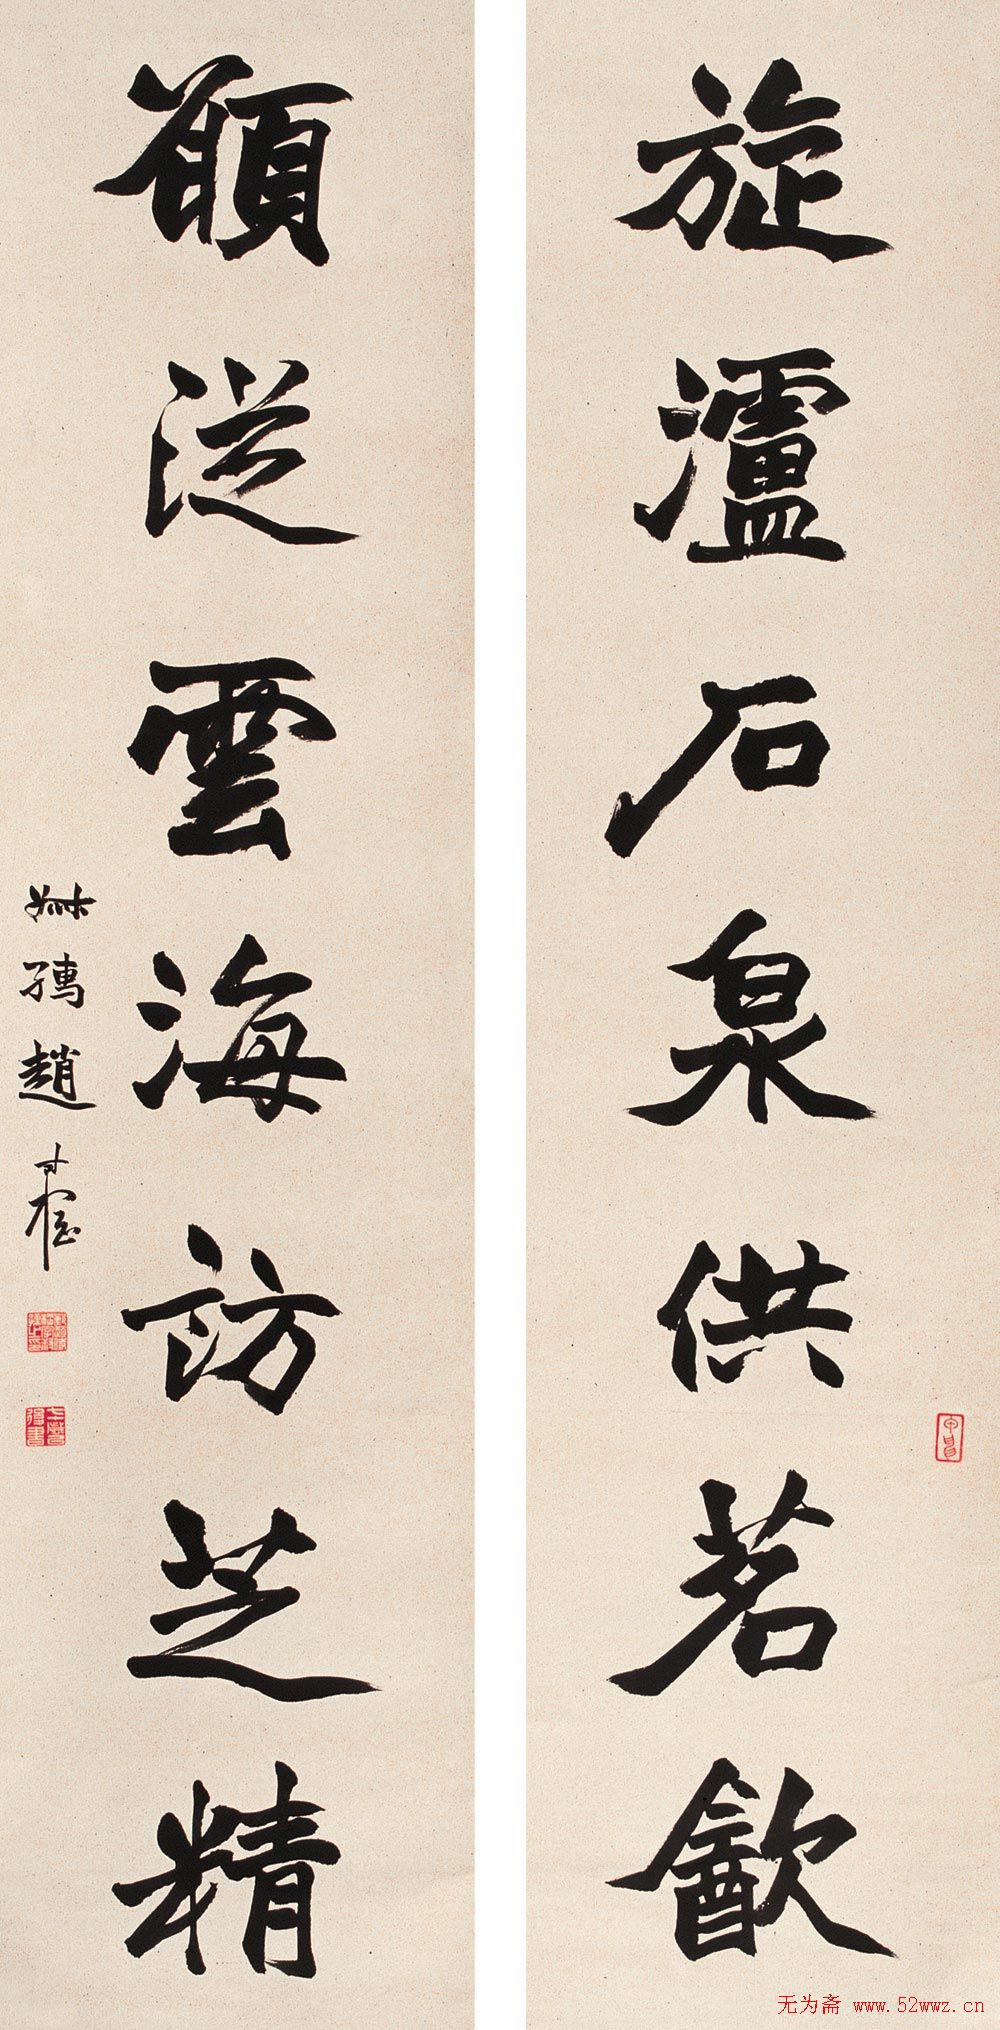 旋瀘石泉供茗㱃
願従雲海訪芝精
叔孺趙時棡
无为斋 www.52wwz.cn